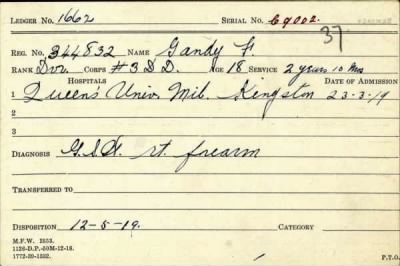 LEDGER NO. 1662 SERIAL NO. C9002.
37
REG. NO. 344832 NAME Gandy F.
RANK Dvr. CORPS #3 D.D. AGE 18 SERVICE 2 years 10 mos
HOSPITALS DATE OF ADMISSION
1 Queens Univ. Mil. Kingston 23-3-19
2
3
DIAGNOSIS G.S.W. rt. forearm
TRANSFERRED TO
DISPOSITION 12-5-19. CATEGORY
M.F.W. 2553.
1126-D.P.-50M-12-18.
1772-39-1332. P.T.O.